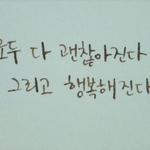 모두 다 괜찮아진다
그리고 행복해진다